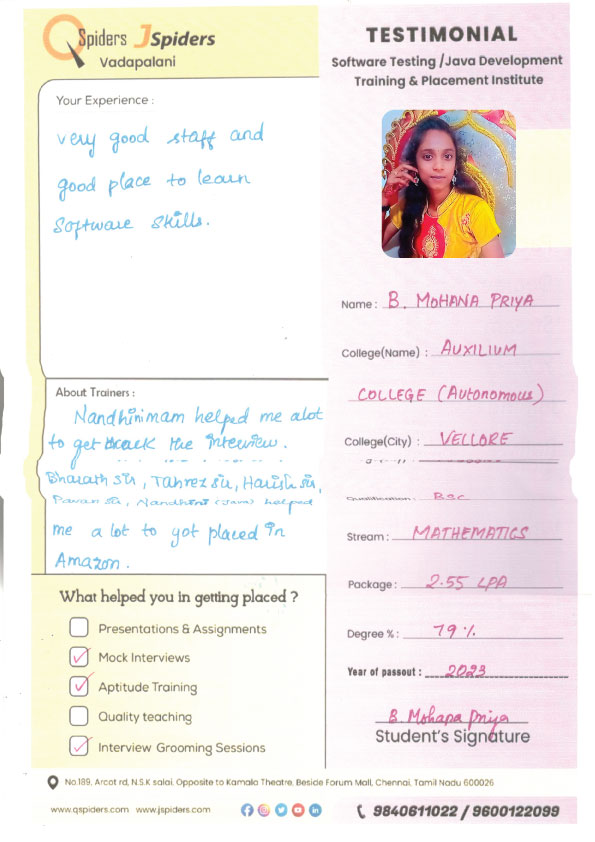 QSpiders JSpiders
Vadapalani
TESTIMONIAL
Software Testing /Java Development
Training & Placement Institute
Your Experience :
very good staff and
good place to learn
Software skills.
Name : B. MOHANA PRIYA
College(Name) : AUXILIUM
COLLEGE (Autonomous)
College(City) : VELLORE
Qualification : B.sc
Stream : MATHEMATICS
Package : 2.55 LPA
Degree % : 79 %
Year of passout : 2023
B. Mohana Priya
Student's Signature
About Trainers :
Nandhinimam helped me alot
to get crack the interview.
Bharath sir, Tahrez sir, Harish sir,
Pavan sir, Nandhini (Java) helped
me a lot to got placed in
Amazon.
What helped you in getting placed ?
Presentations & Assignments
Mock Interviews
Aptitude Training
Quality teaching
Interview Grooming Sessions
No.189, Arcot rd, N.S.K salai, Opposite to Kamala Theatre, Beside Forum Mall, Chennai, Tamil Nadu 600026
www.qspiders.com www.jspiders.com
9840611022 / 9600122099